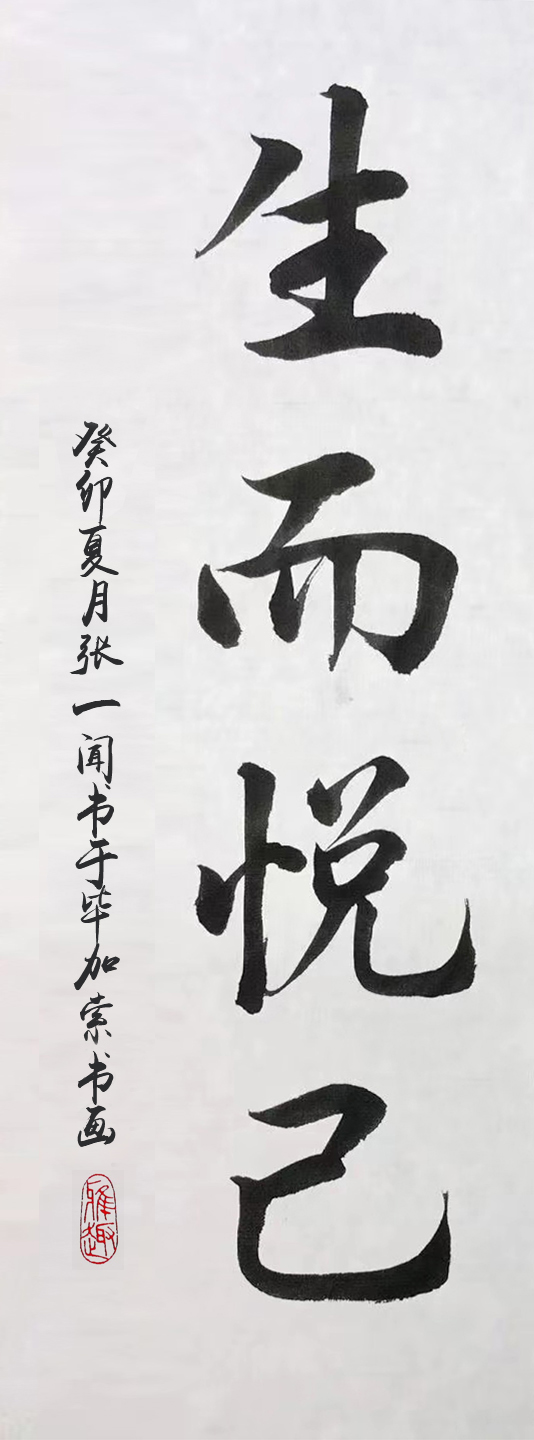 生而悦己
癸卯夏月张一闻书于毕加索书画
雅趣